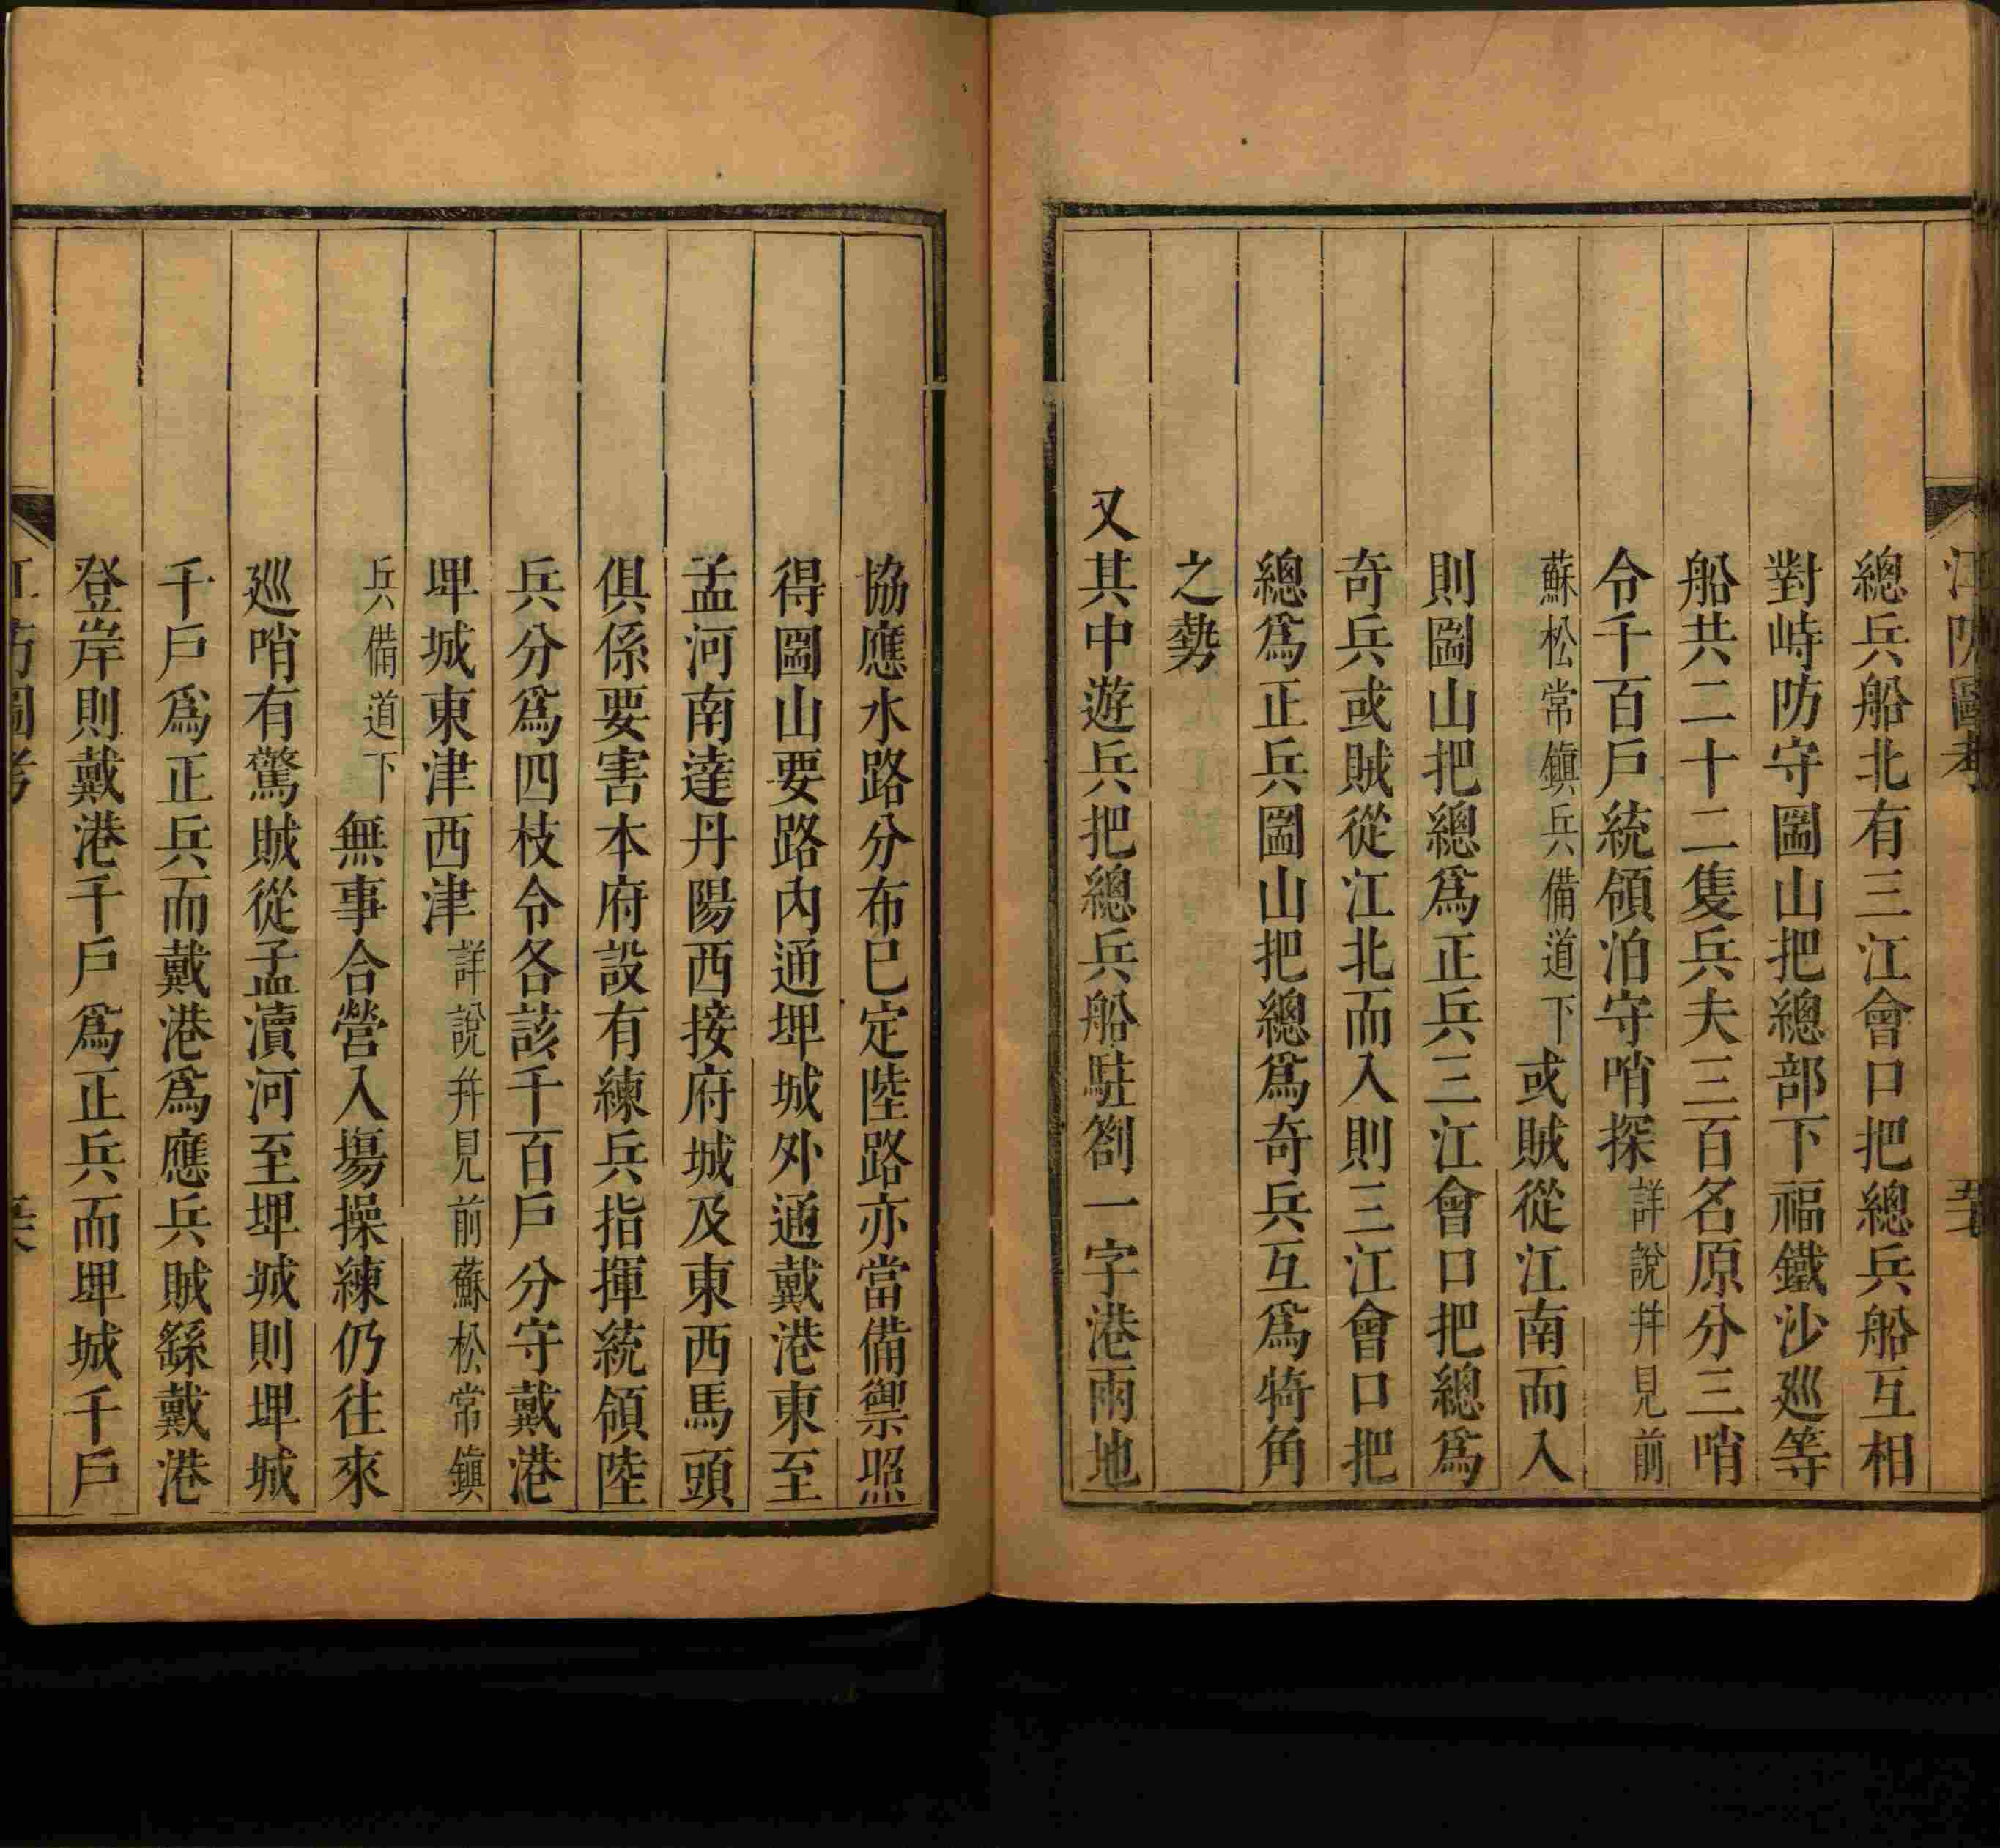 江防圖考
總兵船北有三江會口把總兵船互相
對峙防守圌山把總部下福鐵沙巡等
船共二十二隻兵夫三百名原分三哨
令千百戶統領泊守哨探詳說幷見前
蘇松常鎭兵備道下或賊從江南而入
則圌山把總爲正兵三江會口把總爲
奇兵或賊從江北而入則三江會口把
總爲正兵圌山把總爲奇兵互爲犄角
之勢
又其中遊兵把總兵船駐劄一字港兩地
協應水路分布已定陸路亦當備禦照
得圌山要路內通埤城外通戴港東至
孟河南達丹陽西接府城及東西馬頭
俱係要害本府設有練兵指揮統領陸
兵分爲四枝令各該千百戶分守戴港
埤城東津西津詳說幷見前蘇松常鎭
兵備道下無事合營入塲操練仍往來
廵哨有驚賊從孟瀆河至埤城則埤城
千戶爲正兵而戴港爲應兵賊繇戴港
登岸則戴港千戶爲正兵而埤城千戶
江防圖考